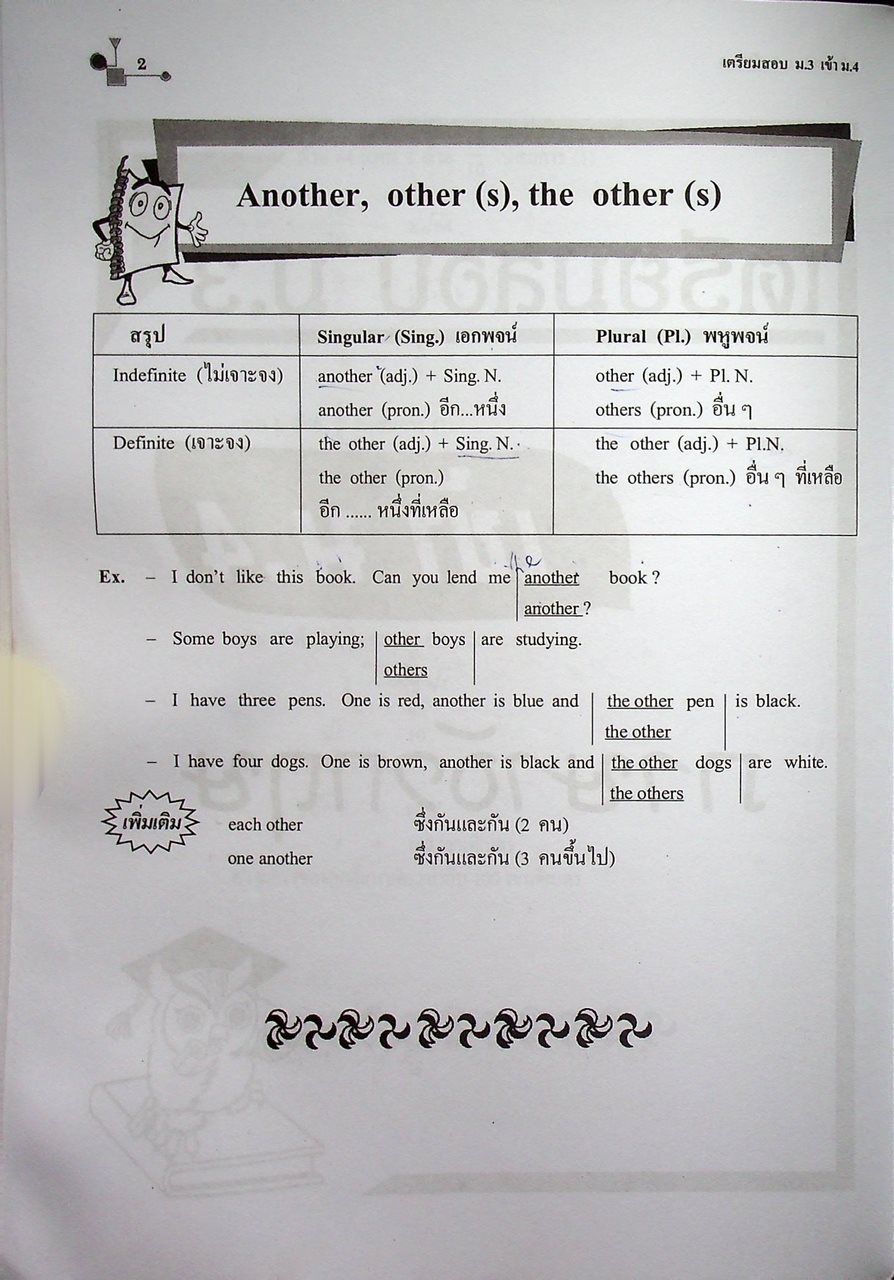 2
เตรียมสอบ ม.3 เข้า ม.4
Another, other (s), the other (s)
สรุป Singular (Sing.) เอกพจน์ Plural (Pl.) พหูพจน์
Indefinite (ไม่เจาะจง) another (adj.) + Sing. N. other (adj.) + Pl. N.
another (pron.) อีก...หนึ่ง others (pron.) อื่น ๆ
Definite (เจาะจง) the other (adj.) + Sing. N. the other (adj.) + Pl.N.
the other (pron.) the others (pron.) อื่น ๆ ที่เหลือ
อีก ...... หนึ่งที่เหลือ
Ex. – I don't like this book. Can you lend me another book ?
another ?
– Some boys are playing; other boys are studying.
others
– I have three pens. One is red, another is blue and the other pen is black.
the other
– I have four dogs. One is brown, another is black and the other dogs are white.
the others
เพิ่มเติม each other ซึ่งกันและกัน (2 คน)
one another ซึ่งกันและกัน (3 คนขึ้นไป)